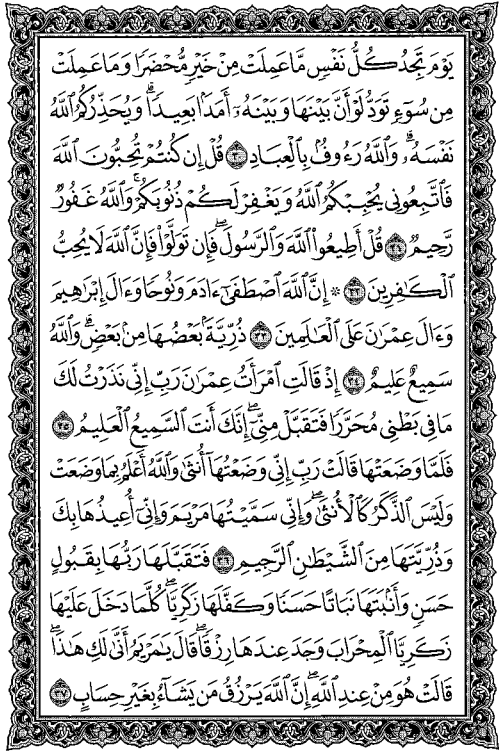 يَوۡمَ تَجِدُ كُلُّ نَفۡسٖ مَّا عَمِلَتۡ مِنۡ خَيۡرٖ مُّحۡضَرٗا وَمَا عَمِلَتۡ
مِن سُوٓءٖ تَوَدُّ لَوۡ أَنَّ بَيۡنَهَا وَبَيۡنَهُۥٓ أَمَدَۢا بَعِيدٗاۗ وَيُحَذِّرُكُمُ ٱللَّهُ
نَفۡسَهُۥۗ وَٱللَّهُ رَءُوفُۢ بِٱلۡعِبَادِ ٣٠ قُلۡ إِن كُنتُمۡ تُحِبُّونَ ٱللَّهَ
فَٱتَّبِعُونِي يُحۡبِبۡكُمُ ٱللَّهُ وَيَغۡفِرۡ لَكُمۡ ذُنُوبَكُمۡۚ وَٱللَّهُ غَفُورٞ
رَّحِيمٞ ٣١ قُلۡ أَطِيعُواْ ٱللَّهَ وَٱلرَّسُولَۖ فَإِن تَوَلَّوۡاْ فَإِنَّ ٱللَّهَ لَا يُحِبُّ
ٱلۡكَٰفِرِينَ ٣٢ ۞ إِنَّ ٱللَّهَ ٱصۡطَفَىٰٓ ءَادَمَ وَنُوحٗا وَءَالَ إِبۡرَٰهِيمَ
وَءَالَ عِمۡرَٰنَ عَلَى ٱلۡعَٰلَمِينَ ٣٣ ذُرِّيَّةَۢ بَعۡضُهَا مِنۢ بَعۡضٖۗ وَٱللَّهُ
سَمِيعٌ عَلِيمٌ ٣٤ إِذۡ قَالَتِ ٱمۡرَأَتُ عِمۡرَٰنَ رَبِّ إِنِّي نَذَرۡتُ لَكَ
مَا فِي بَطۡنِي مُحَرَّرٗا فَتَقَبَّلۡ مِنِّيٓۖ إِنَّكَ أَنتَ ٱلسَّمِيعُ ٱلۡعَلِيمُ ٣٥
فَلَمَّا وَضَعَتۡهَا قَالَتۡ رَبِّ إِنِّي وَضَعۡتُهَآ أُنثَىٰ وَٱللَّهُ أَعۡلَمُ بِمَا وَضَعَتۡ
وَلَيۡسَ ٱلذَّكَرُ كَٱلۡأُنثَىٰۖ وَإِنِّي سَمَّيۡتُهَا مَرۡيَمَ وَإِنِّيٓ أُعِيذُهَا بِكَ
وَذُرِّيَّتَهَا مِنَ ٱلشَّيۡطَٰنِ ٱلرَّجِيمِ ٣٦ فَتَقَبَّلَهَا رَبُّهَا بِقَبُولٍ
حَسَنٖ وَأَنۢبَتَهَا نَبَاتًا حَسَنٗا وَكَفَّلَهَا زَكَرِيَّاۖ كُلَّمَا دَخَلَ عَلَيۡهَا
زَكَرِيَّا ٱلۡمِحۡرَابَ وَجَدَ عِندَهَا رِزۡقٗاۖ قَالَ يَٰمَرۡيَمُ أَنَّىٰ لَكِ هَٰذَاۖ
قَالَتۡ هُوَ مِنۡ عِندِ ٱللَّهِۖ إِنَّ ٱللَّهَ يَرۡزُقُ مَن يَشَآءُ بِغَيۡرِ حِسَابٍ ٣٧